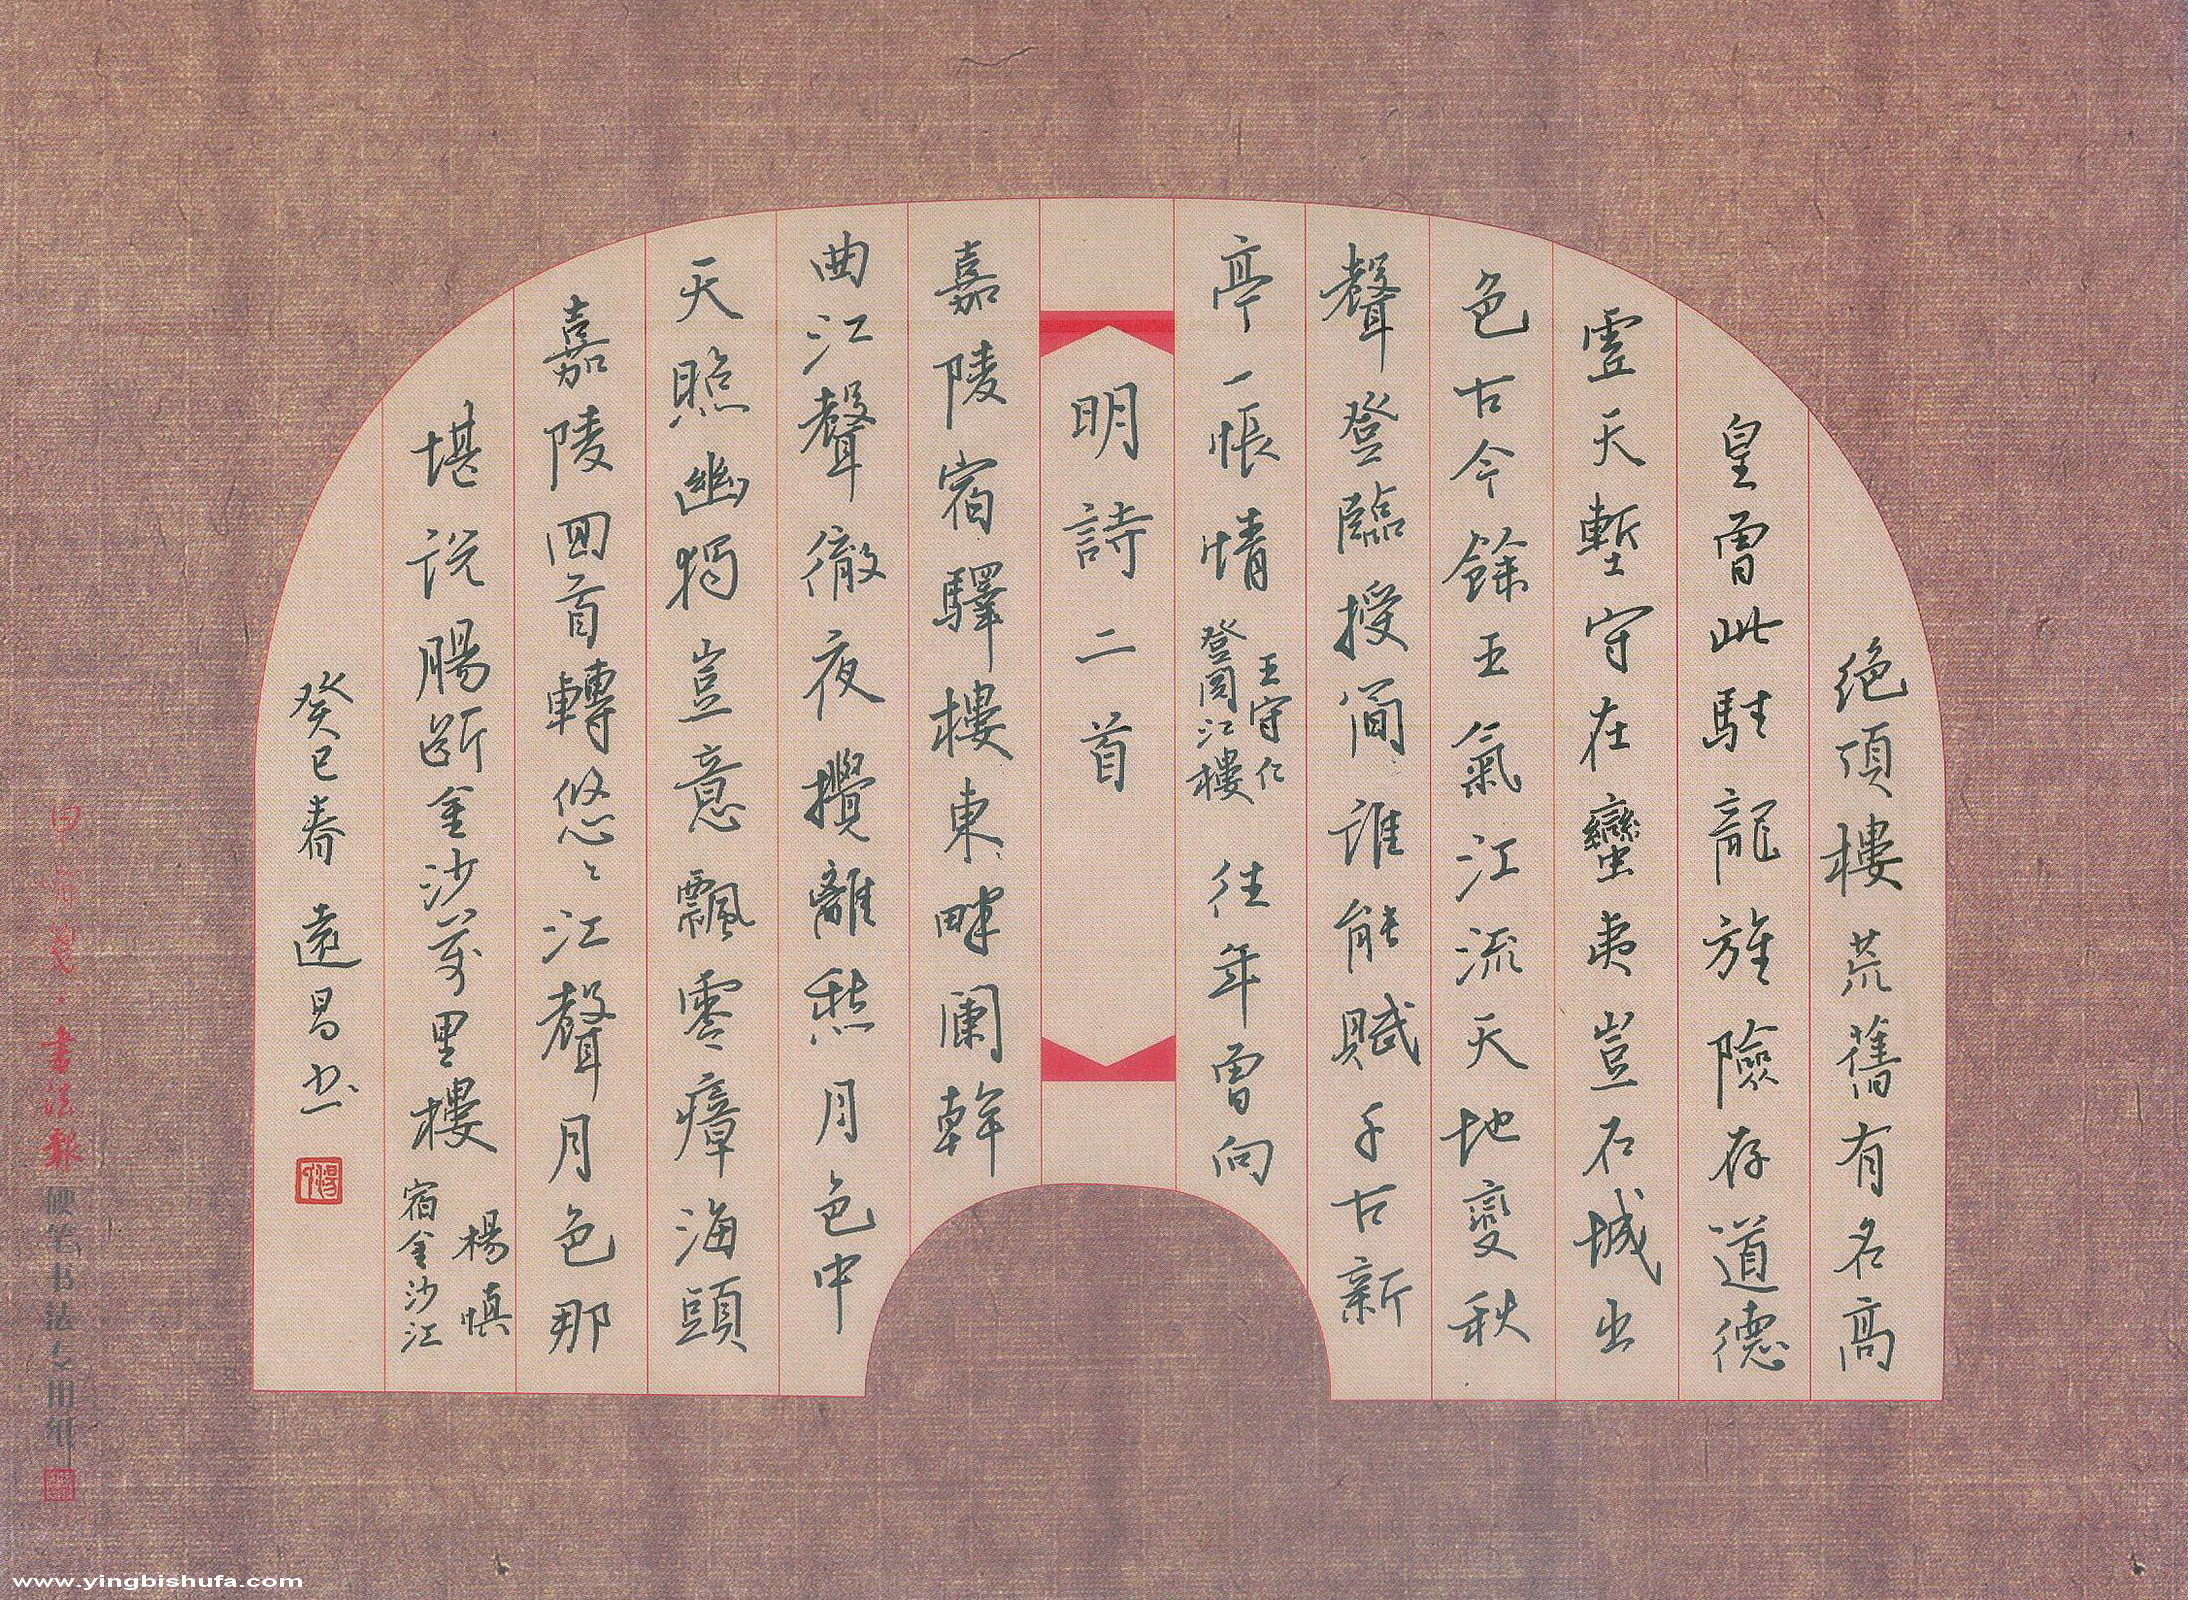 绝頂樓荒舊有名高
皇曾此駐龍旌險存道德
虛天塹守在蠻夷豈石城山
色古今餘王氣江流天地變秋
聲登臨授簡誰能賦千古新
亭一悵情
王守仁
登閱江樓
往年曾向
明詩二首
嘉陵宿驛樓東畔闌幹
曲江聲徹夜攪離愁月色中
天照幽獨豈意飄零瘴海頭
嘉陵回首轉悠〻江聲月色那
堪说腸断金沙萬里樓
楊慎
宿金沙江
癸巳春遠昌书
笺·書法報硬笔书法专用纸
www.yingbishufa.com